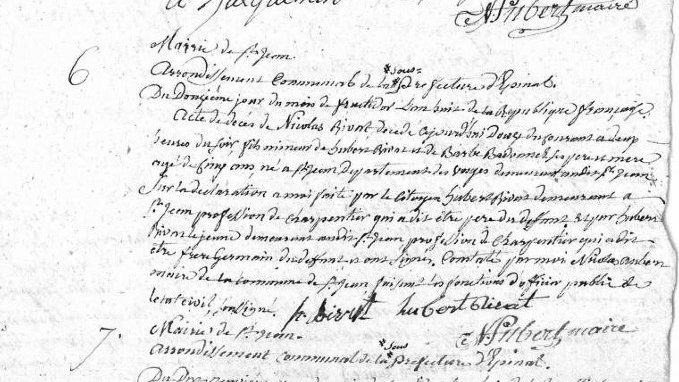 N. hubert maire
6
Mairie de St Jean
Arrondissement Communal de la *sous= prefecture d'Epinal.
Du Douzième jour du mois de fructidor L'an huit de la Republique françaiſe.
Acte de décès de Nicolas Rivat decede ajourd'hui douze du courant a deux
heures du soir fils mineur de hubert Rivat et de Barbe ses pere et mere
agé de Cinq ans né a St Jean Departement des vosges demeurant audit St Jean
Sur la déclaration a moi faite par le Citoyen hubert Rivat demeurant a
St Jean profession de Charpentier qui a dit être pere du defunt et par hubert
Rivat le jeune demeurant audit St Jean profession de Charpentier qui a dit
être frere Germain du deffunt et ont signés, Constaté par moi Nicolas hubert
maire de la commune de St Jean faisant les fonctions d'officier public de
letat civil, soussigné. hubert Rivat
N. hubert maire
7.
Mairie de St Jean.
Arrondissement Communal de la *sous Prefecture d'Epinal.